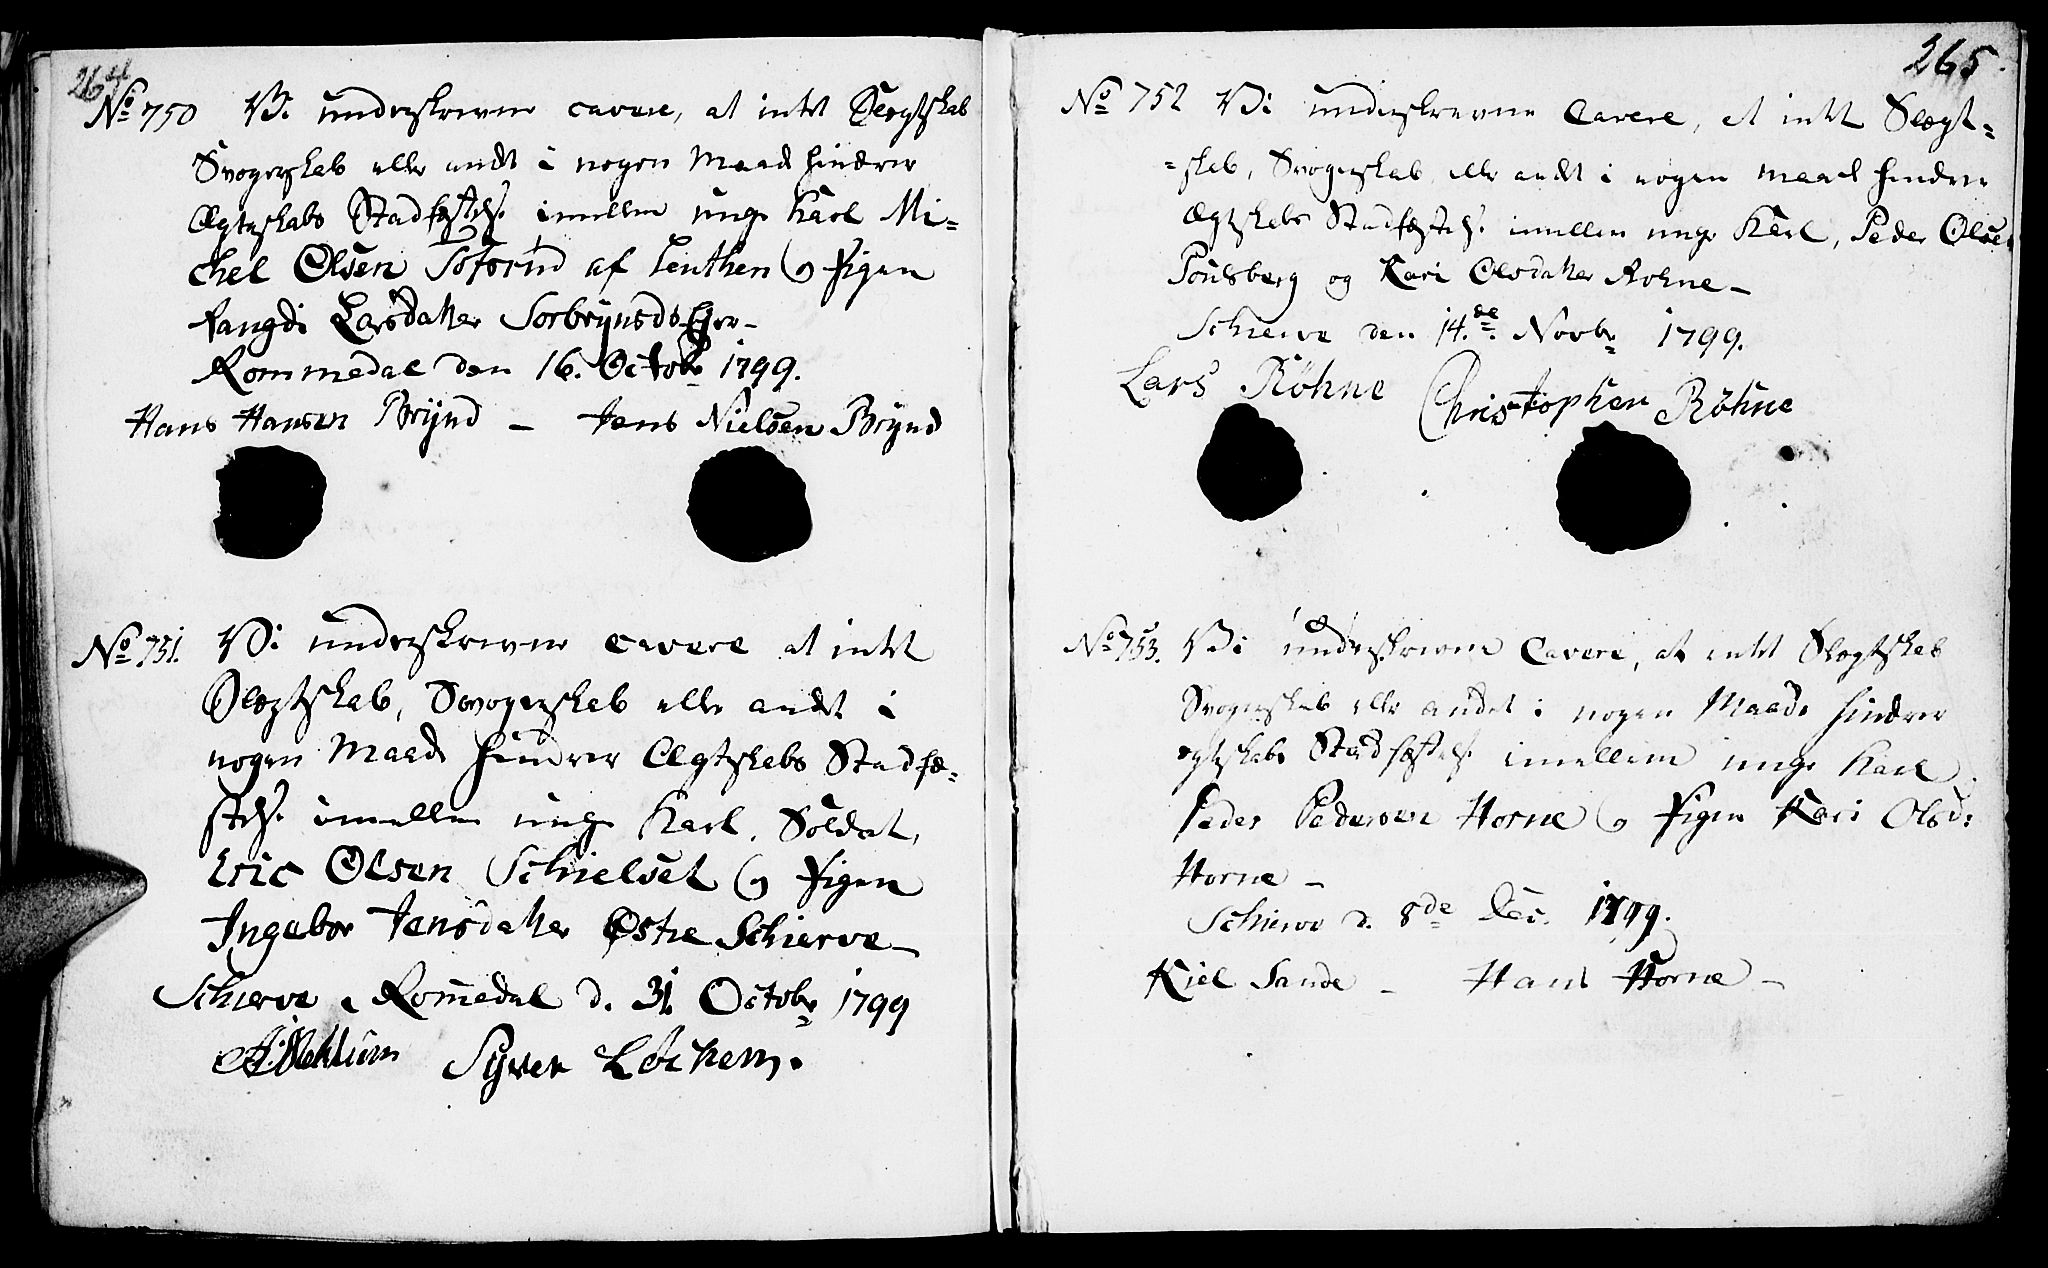 264
No 750 Vi underskrevne cavere, at intet Slegtskab
Svogerskab eller andt i nogen Maade hindrer
Ægteskabs Stadfæstelse imellem unge Karl Mi-
chel Olsen Tofsrud af Leuthen og Pigen
Langdi Larsdatter Sorbrÿnsds Ejer-
Rommedal den 16. Octobr 1799.
Hans Hansen Brÿnd - Jens Nielsen Brÿnd
No 751. Vi underskrevne cavere at intet
Slegtskab, Svogerskab eller andet i
nogen Maade hindrer Ægteskabs Stadfæ-
stelse imellem unge Karl, Soldat,
Eric Olsen Schielset og Pigen
Ingebor Jensdatter Østre Schierve-
Schierve i Romedal d. 31 Octobr 1799
Syver Løchem.
265.
No 752 Vi underskrevne Cavere, at intet Slægt-
-skab, Svogerskab eller andet i nogen Maade hindrer
Ægteskabs Stadfæstelse imellem unge Karl, Peder Olsen
Poulsberg og Kari Olsdatter Rohne-
Schierve den 14.de Novbr 1799.
Lars Röhne Christopher Röhne
No 753. Vi underskrevne Cavere, at intet Slegtskab
Svogerskab eller andet i nogen Maade hindrer
egteskabs Stadfæstelse imellem unge Karl
Peder Pedersen Horne og Pigen Kari Olsd:
Horne -
Schierve d. 8de Dec. 1799.
Kiel Sande - Hans Horne -